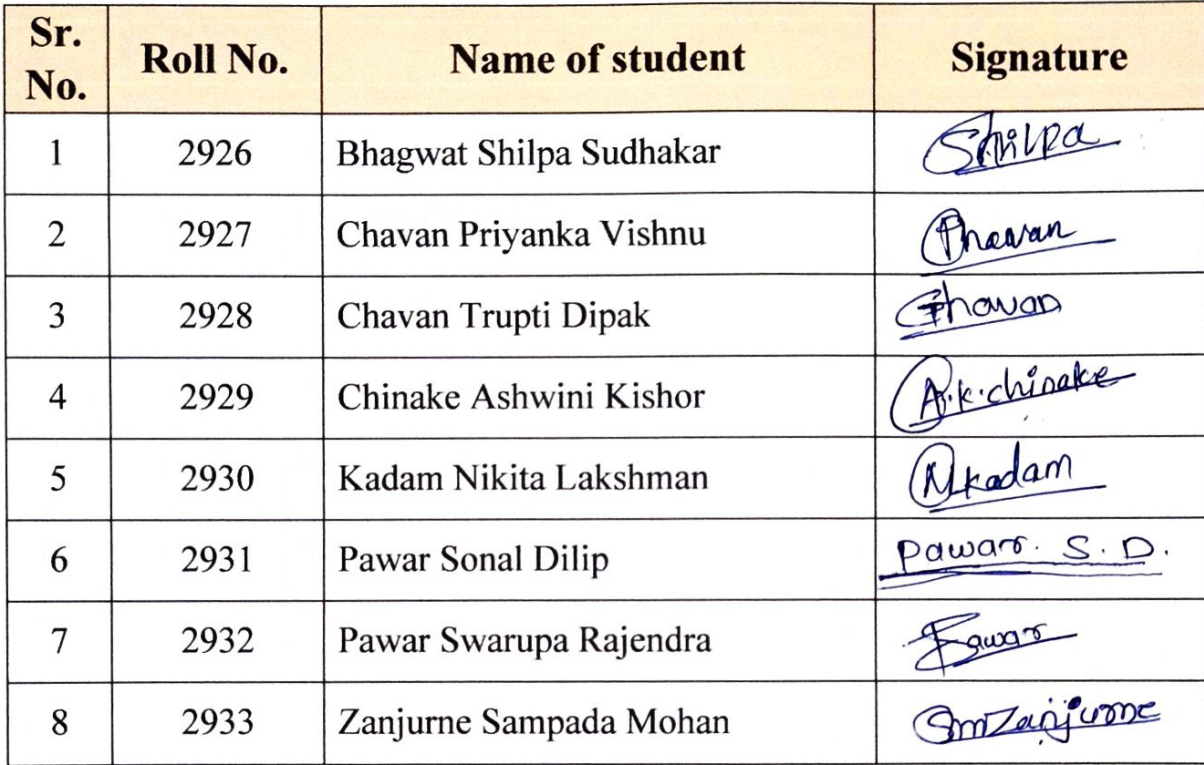 Sr. No. Roll No. Name of student Signature
1 2926 Bhagwat Shilpa Sudhakar Shilpa
2 2927 Chavan Priyanka Vishnu
3 2928 Chavan Trupti Dipak
4 2929 Chinake Ashwini Kishor A.k.chinake
5 2930 Kadam Nikita Lakshman Nkadam
6 2931 Pawar Sonal Dilip Pawar. S. D.
7 2932 Pawar Swarupa Rajendra
8 2933 Zanjurne Sampada Mohan SmZanjurne